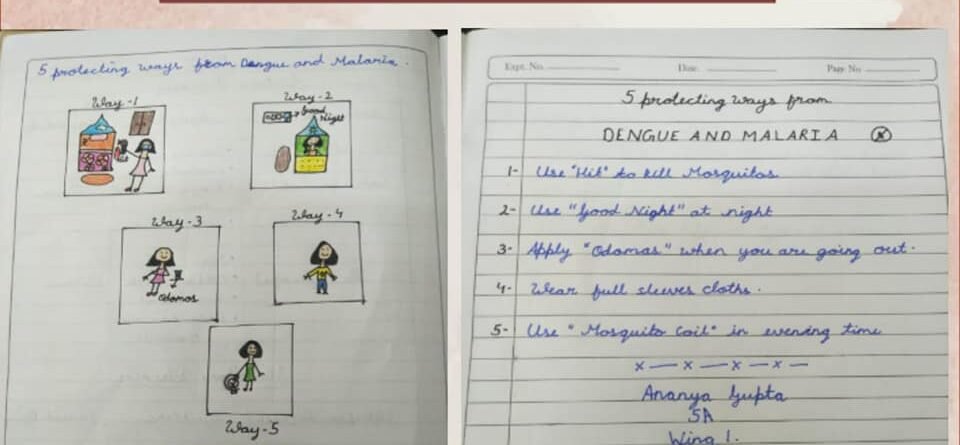 5 protecting ways from Dengue and Malaria.
Way-1
Way-2
Good Night
Way-3
Way-4
Odomos
Way-5
Expt. No.
Date
Page No.
5 protecting ways from
DENGUE AND MALARIA
1- Use "Hit" to kill Mosquitos
2- Use "Good Night" at night
3- Apply "Odomas" when you are going out.
4- Wear full sleeves cloths.
5- Use "Mosquito Coil" in evening time
x — x — x — x —
Ananya Gupta
5A
Wing 1.